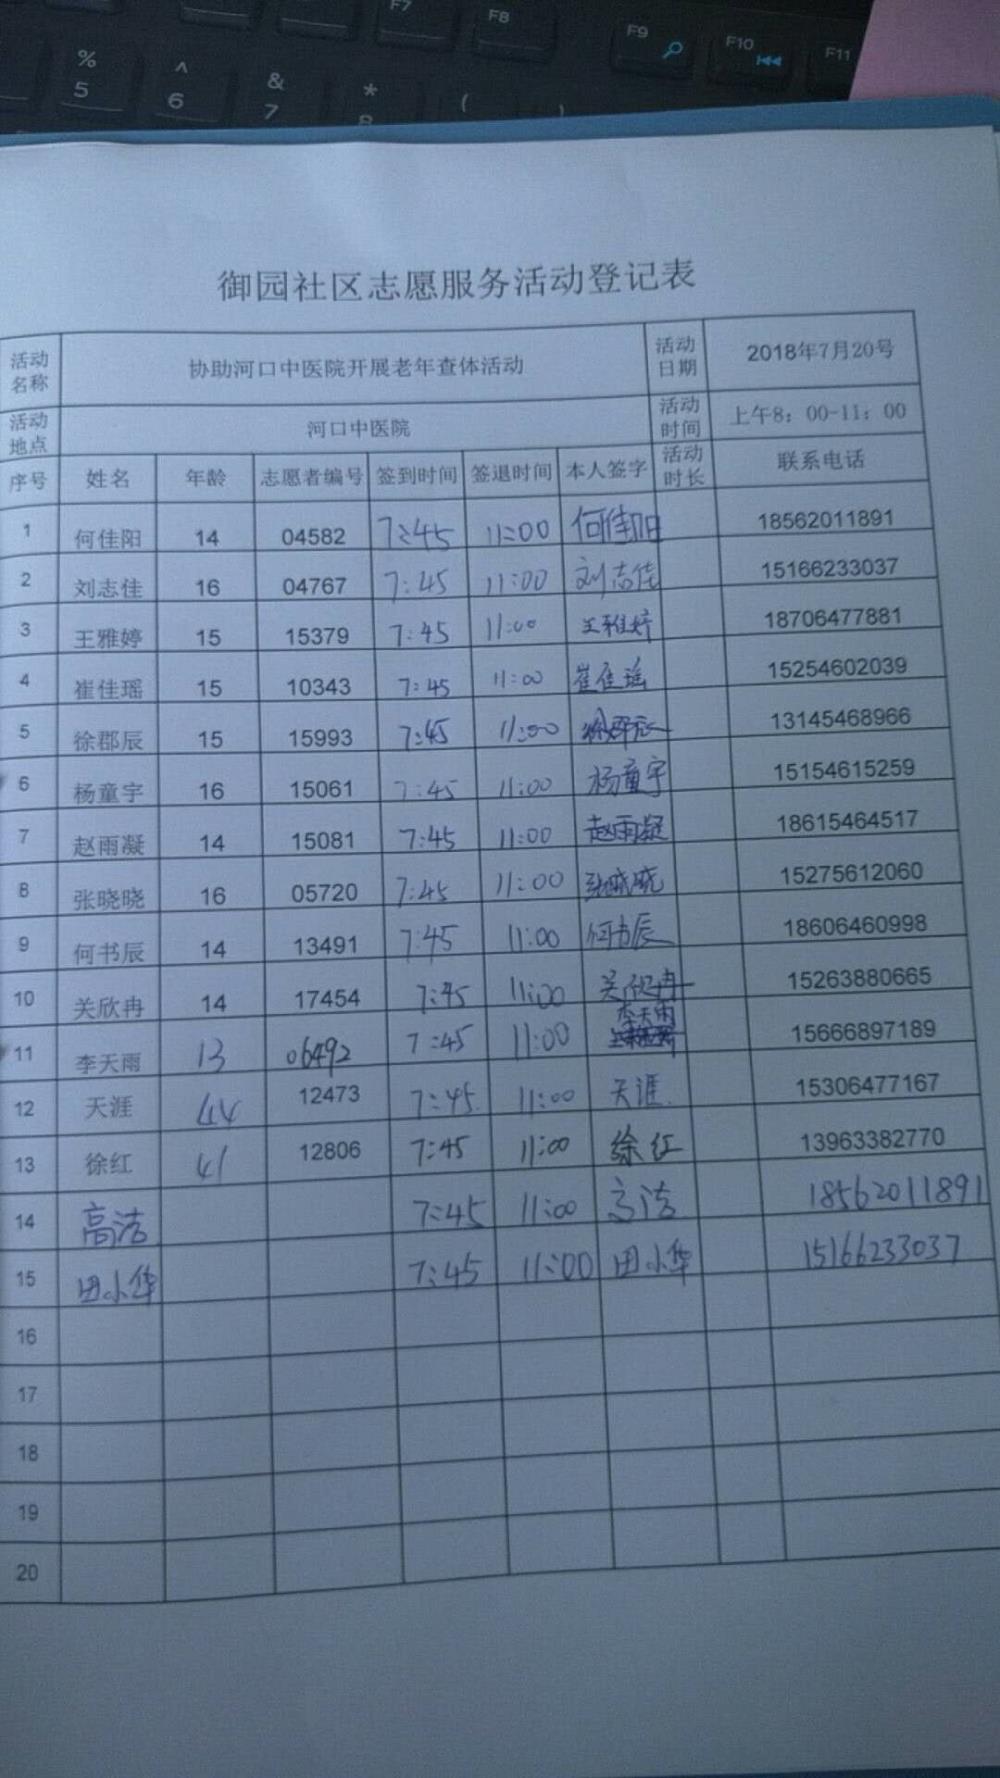 F7 F8 F9 F10 F11
% ^ & * ( )
5 6 7 8
御园社区志愿服务活动登记表
活动名称 协助河口中医院开展老年查体活动 活动日期 2018年7月20号
活动地点 河口中医院 活动时间 上午8：00-11：00
序号 姓名 年龄 志愿者编号 签到时间 签退时间 本人签字 活动时长 联系电话
1 何佳阳 14 04582 7:45 11:00 何佳阳 18562011891
2 刘志佳 16 04767 7:45 11:00 刘志佳 15166233037
3 王雅婷 15 15379 7:45 11:00 王雅婷 18706477881
4 崔佳瑶 15 10343 7:45 11:00 崔佳瑶 15254602039
5 徐郡辰 15 15993 7:45 11:00 徐郡辰 13145468966
6 杨童宇 16 15061 7:45 11:00 杨童宇 15154615259
7 赵雨凝 14 15081 7:45 11:00 赵雨凝 18615464517
8 张晓晓 16 05720 7:45 11:00 张晓晓 15275612060
9 何书辰 14 13491 7:45 11:00 何书辰 18606460998
10 关欣冉 14 17454 7:45 11:00 关欣冉 15263880665
11 李天雨 13 06492 7:45 11:00 李天雨 15666897189
12 天涯 44 12473 7:45 11:00 天涯 15306477167
13 徐红 41 12806 7:45 11:00 徐红 13963382770
14 高洁 7:45 11:00 高洁 18562011891
15 田小华 7:45 11:00 田小华 15166233037
16
17
18
19
20